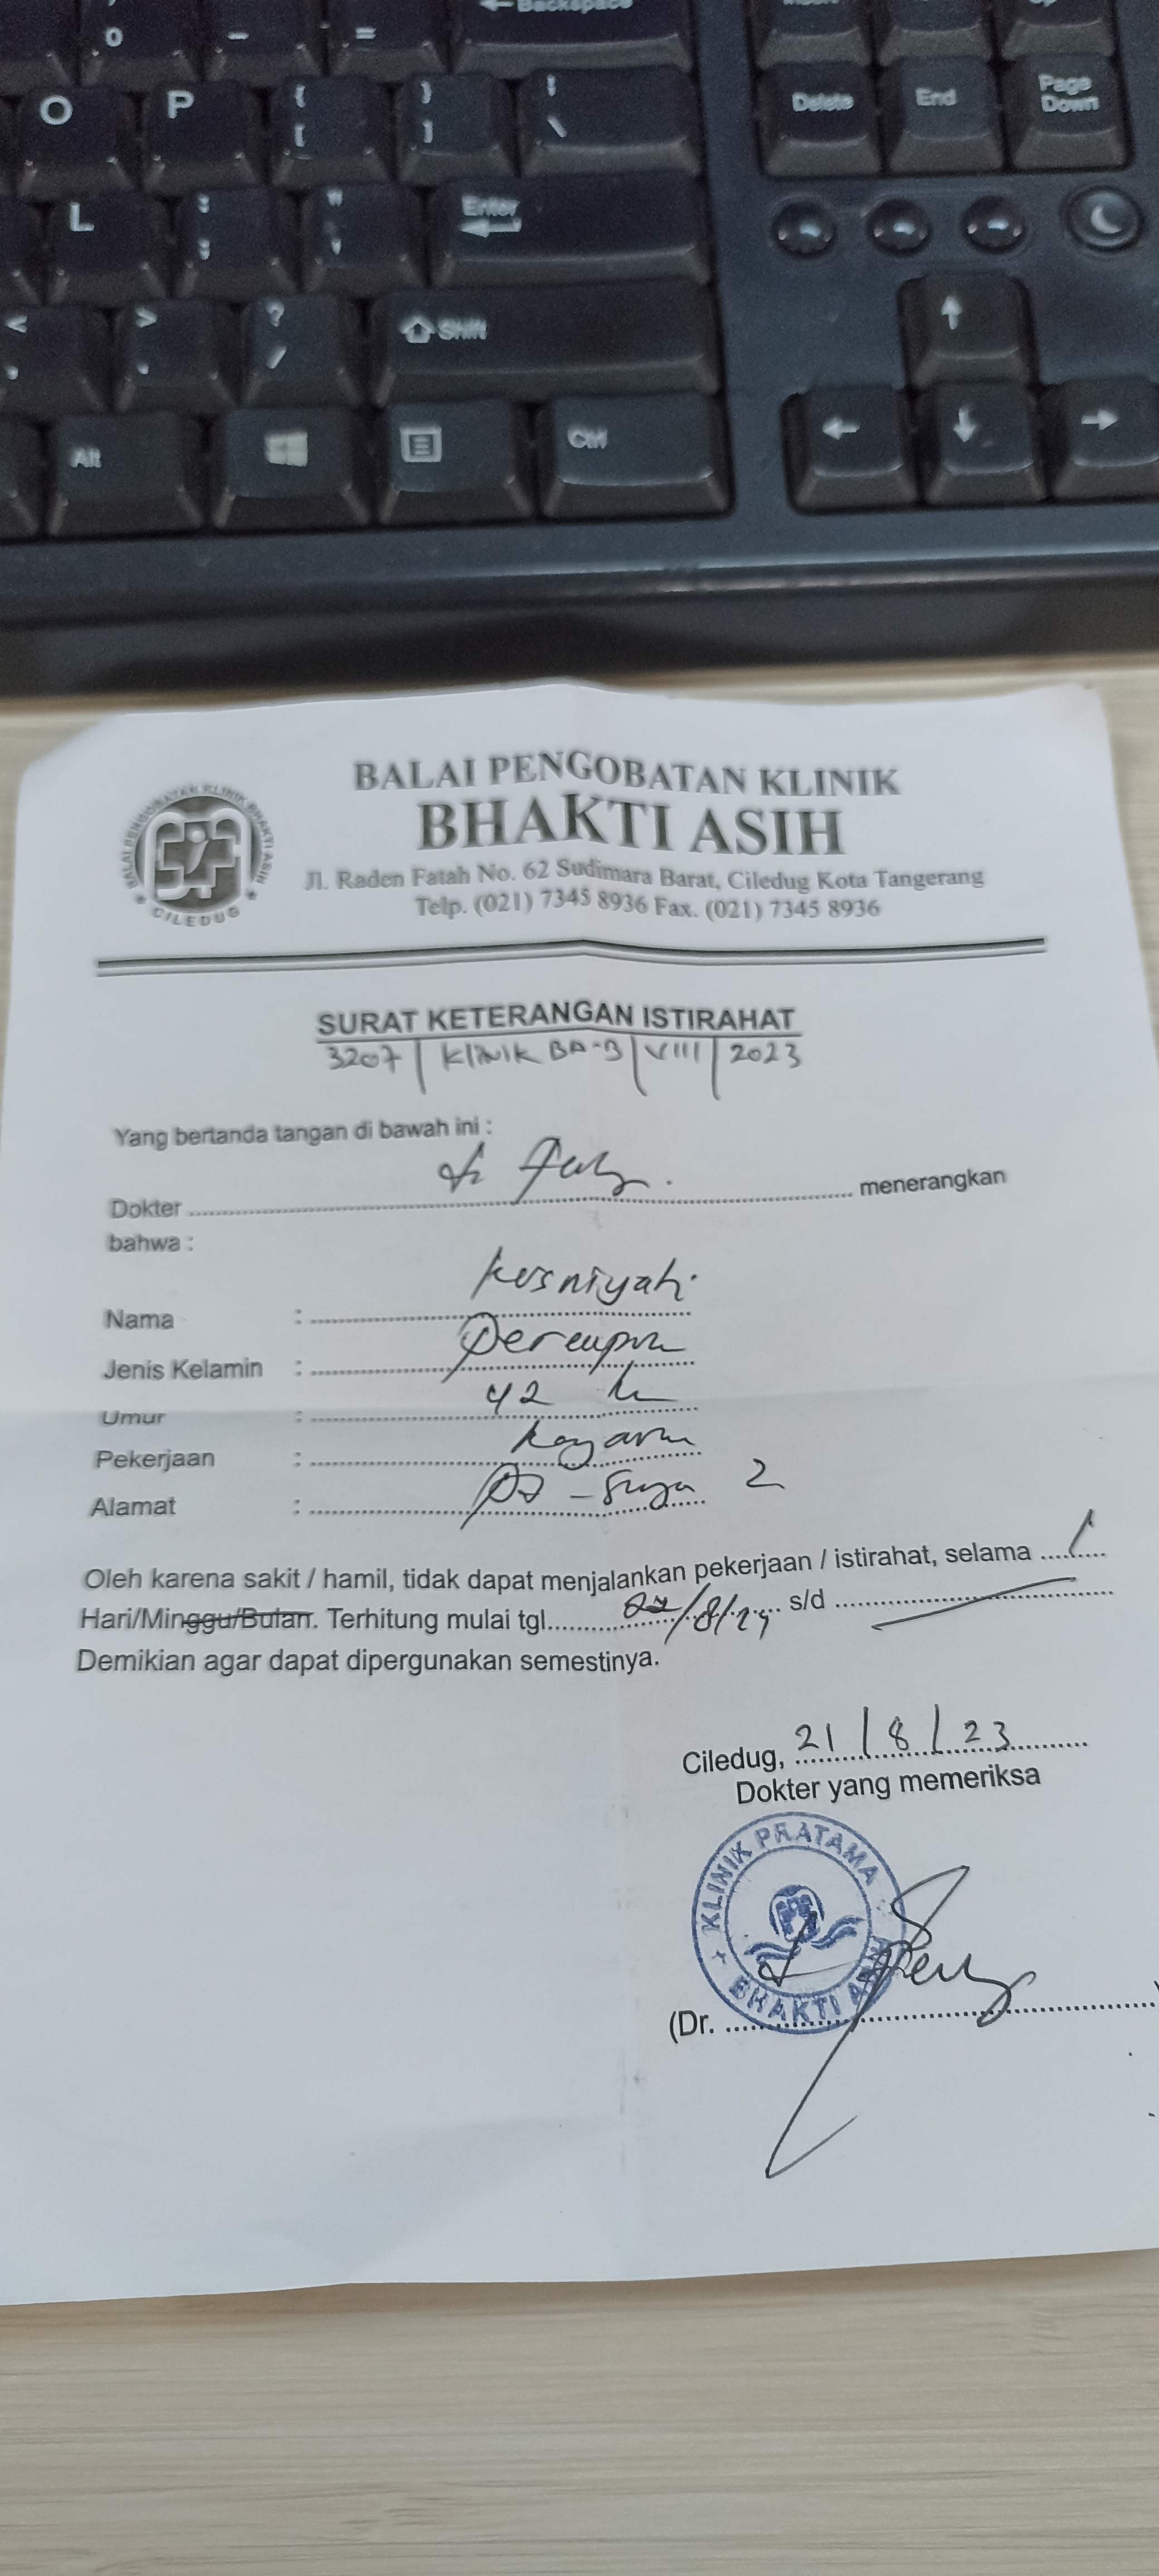 0 - =
Backspace
O P { [ } ] | \
Delete End Page Down
L : ; " '
Enter
< , > . ? /
Shift
Alt Ctrl
BALAI PENGOBATAN KLINIK
BHAKTI ASIH
Jl. Raden Fatah No. 62 Sudimara Barat, Ciledug Kota Tangerang
Telp. (021) 7345 8936 Fax. (021) 7345 8936
BALAI PENGOBATAN KLINIK BHAKTI ASIH
CILEDUG
SURAT KETERANGAN ISTIRAHAT
3207 | KLINIK BA-B | VIII | 2023
Yang bertanda tangan di bawah ini :
Dokter menerangkan
bahwa :
Nama : Kusniyah
Jenis Kelamin : Perempuan
Umur : 42 th
Pekerjaan : Karyawan
Alamat : 2
Oleh karena sakit / hamil, tidak dapat menjalankan pekerjaan / istirahat, selama 1
Hari/Minggu/Bulan. Terhitung mulai tgl. s/d
Demikian agar dapat dipergunakan semestinya.
Ciledug, 21/8/23
Dokter yang memeriksa
KLINIK PRATAMA
BHAKTI ASIH
(Dr.